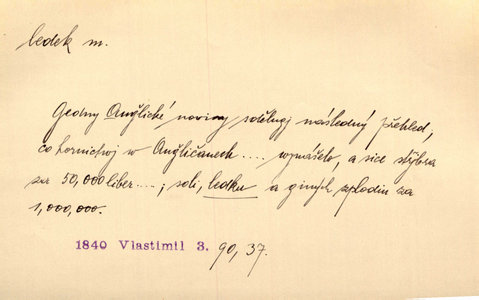 ledek m.
Gedny Anglické noviny sdělugj následný přehled,
co hornictwj w Angličanech .... wynášelo, a sice stříbra
za 50,000 liber ....; soli, ledku a giných zplodin za
1,000,000.
1840 Vlastimil 3. 90, 37.